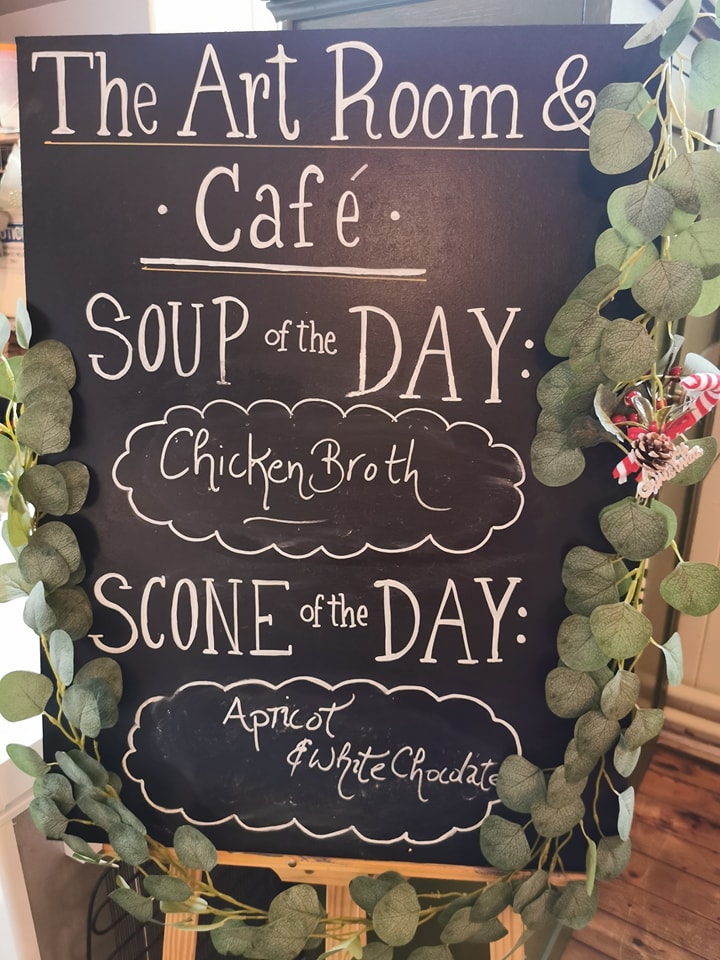 The Art Room &
· Café ·
SOUP of the DAY:
Chicken Broth
SCONE of the DAY:
Apricot
& White Chocolate